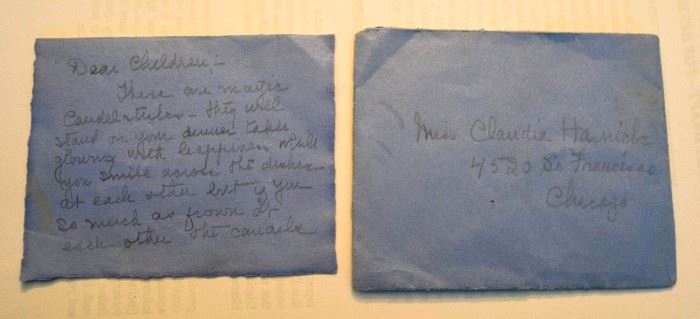 Dear Children:-
These are magic
Candelsticks - they will
stand on your dinner table
glowing with happiness while
you smile across the dishes
at each other but if you
so much as frown at
each other the candels
Miss Claudia
4520 So Francisco
Chicago